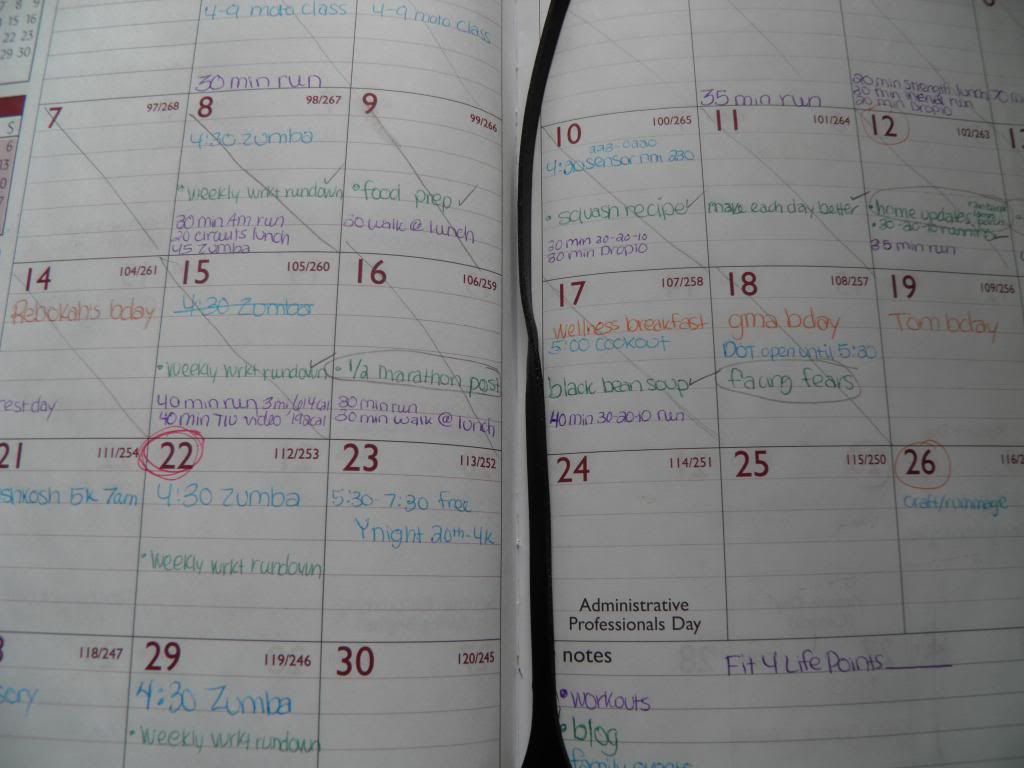 7 8 9
15 16
22 23
29 30
S
6
13
4-9 moto class
4-9 moto class
30 min run
35 min run
20 min strength lunch
20 min
20 min Propio
7
97/268
8
98/267
4:30 zumba
• weekly wrkt rundown
30 min Am run
20 circuits lunch
45 zumba
9
99/266
• food prep
30 walk @ lunch
10
100/265
4:20 sensor rm 230
• squash recipe
30 min 30-20-10
30 min Propio
11
101/264
make each day better
12
102/263
• home updates
• 30-20-10 running
35 min run
13
14
104/261
Rebekah's bday
rest day
15
105/260
4:30 zumba
• weekly wrkt rundown
40 min run 3mi/
40 min T10 video 192cal
16
106/259
• 1/2 marathon post
30 min run
30 min walk @ lunch
17
107/258
wellness breakfast
5:00 cookout
black bean soup
40 min 30-20-10 run
18
108/257
gma bday
DOT open until 5:30
facing fears
19
109/256
Tom bday
21
111/254
shkosh 5k 7am
22
112/253
4:30 zumba
• weekly wrkt rundown
23
113/252
5:30-7:30 free
Y night 20th-4k
24
114/251
Administrative
Professionals Day
25
115/250
26
116/2
craft/rummage
118/247
sory
29
119/246
4:30 Zumba
• weekly wrkt rundown
30
120/245
notes
Fit 4 Life Points
• workouts
• blog
family events